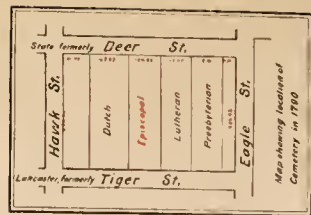 State formerly Deer St.
Hawk St.
Dutch
Episcopal
Lutheran
Presbyterian
Eagle St.
Lancaster, formerly Tiger St.
Map showing location of
Cemetery in 1790